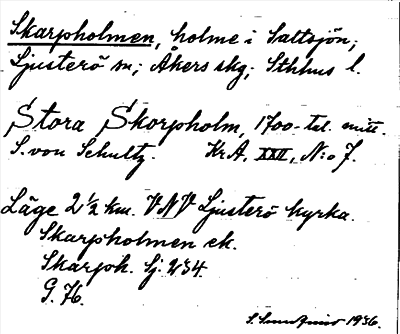 Skarpholmen, holme i Saltsjön,
Ljusterö sn; Åkers skg; Sthlms l.
Stora Skorpholm, 1700-tal. mitt.
S. von Schultz. KrA, XXII, N:o 7.
Läge 2 1/2 km. VNV Ljusterö kyrka.
Skarpholmen ek.
Skarph. Sj. 234.
G. 76.
S. 1936.